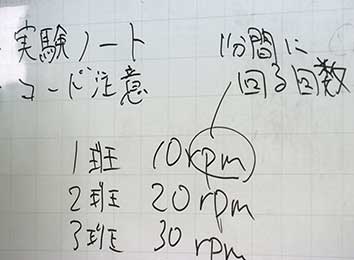 実験ノート
コード注意
1分間に
回る回数
1班 10rpm
2班 20rpm
3班 30rpm